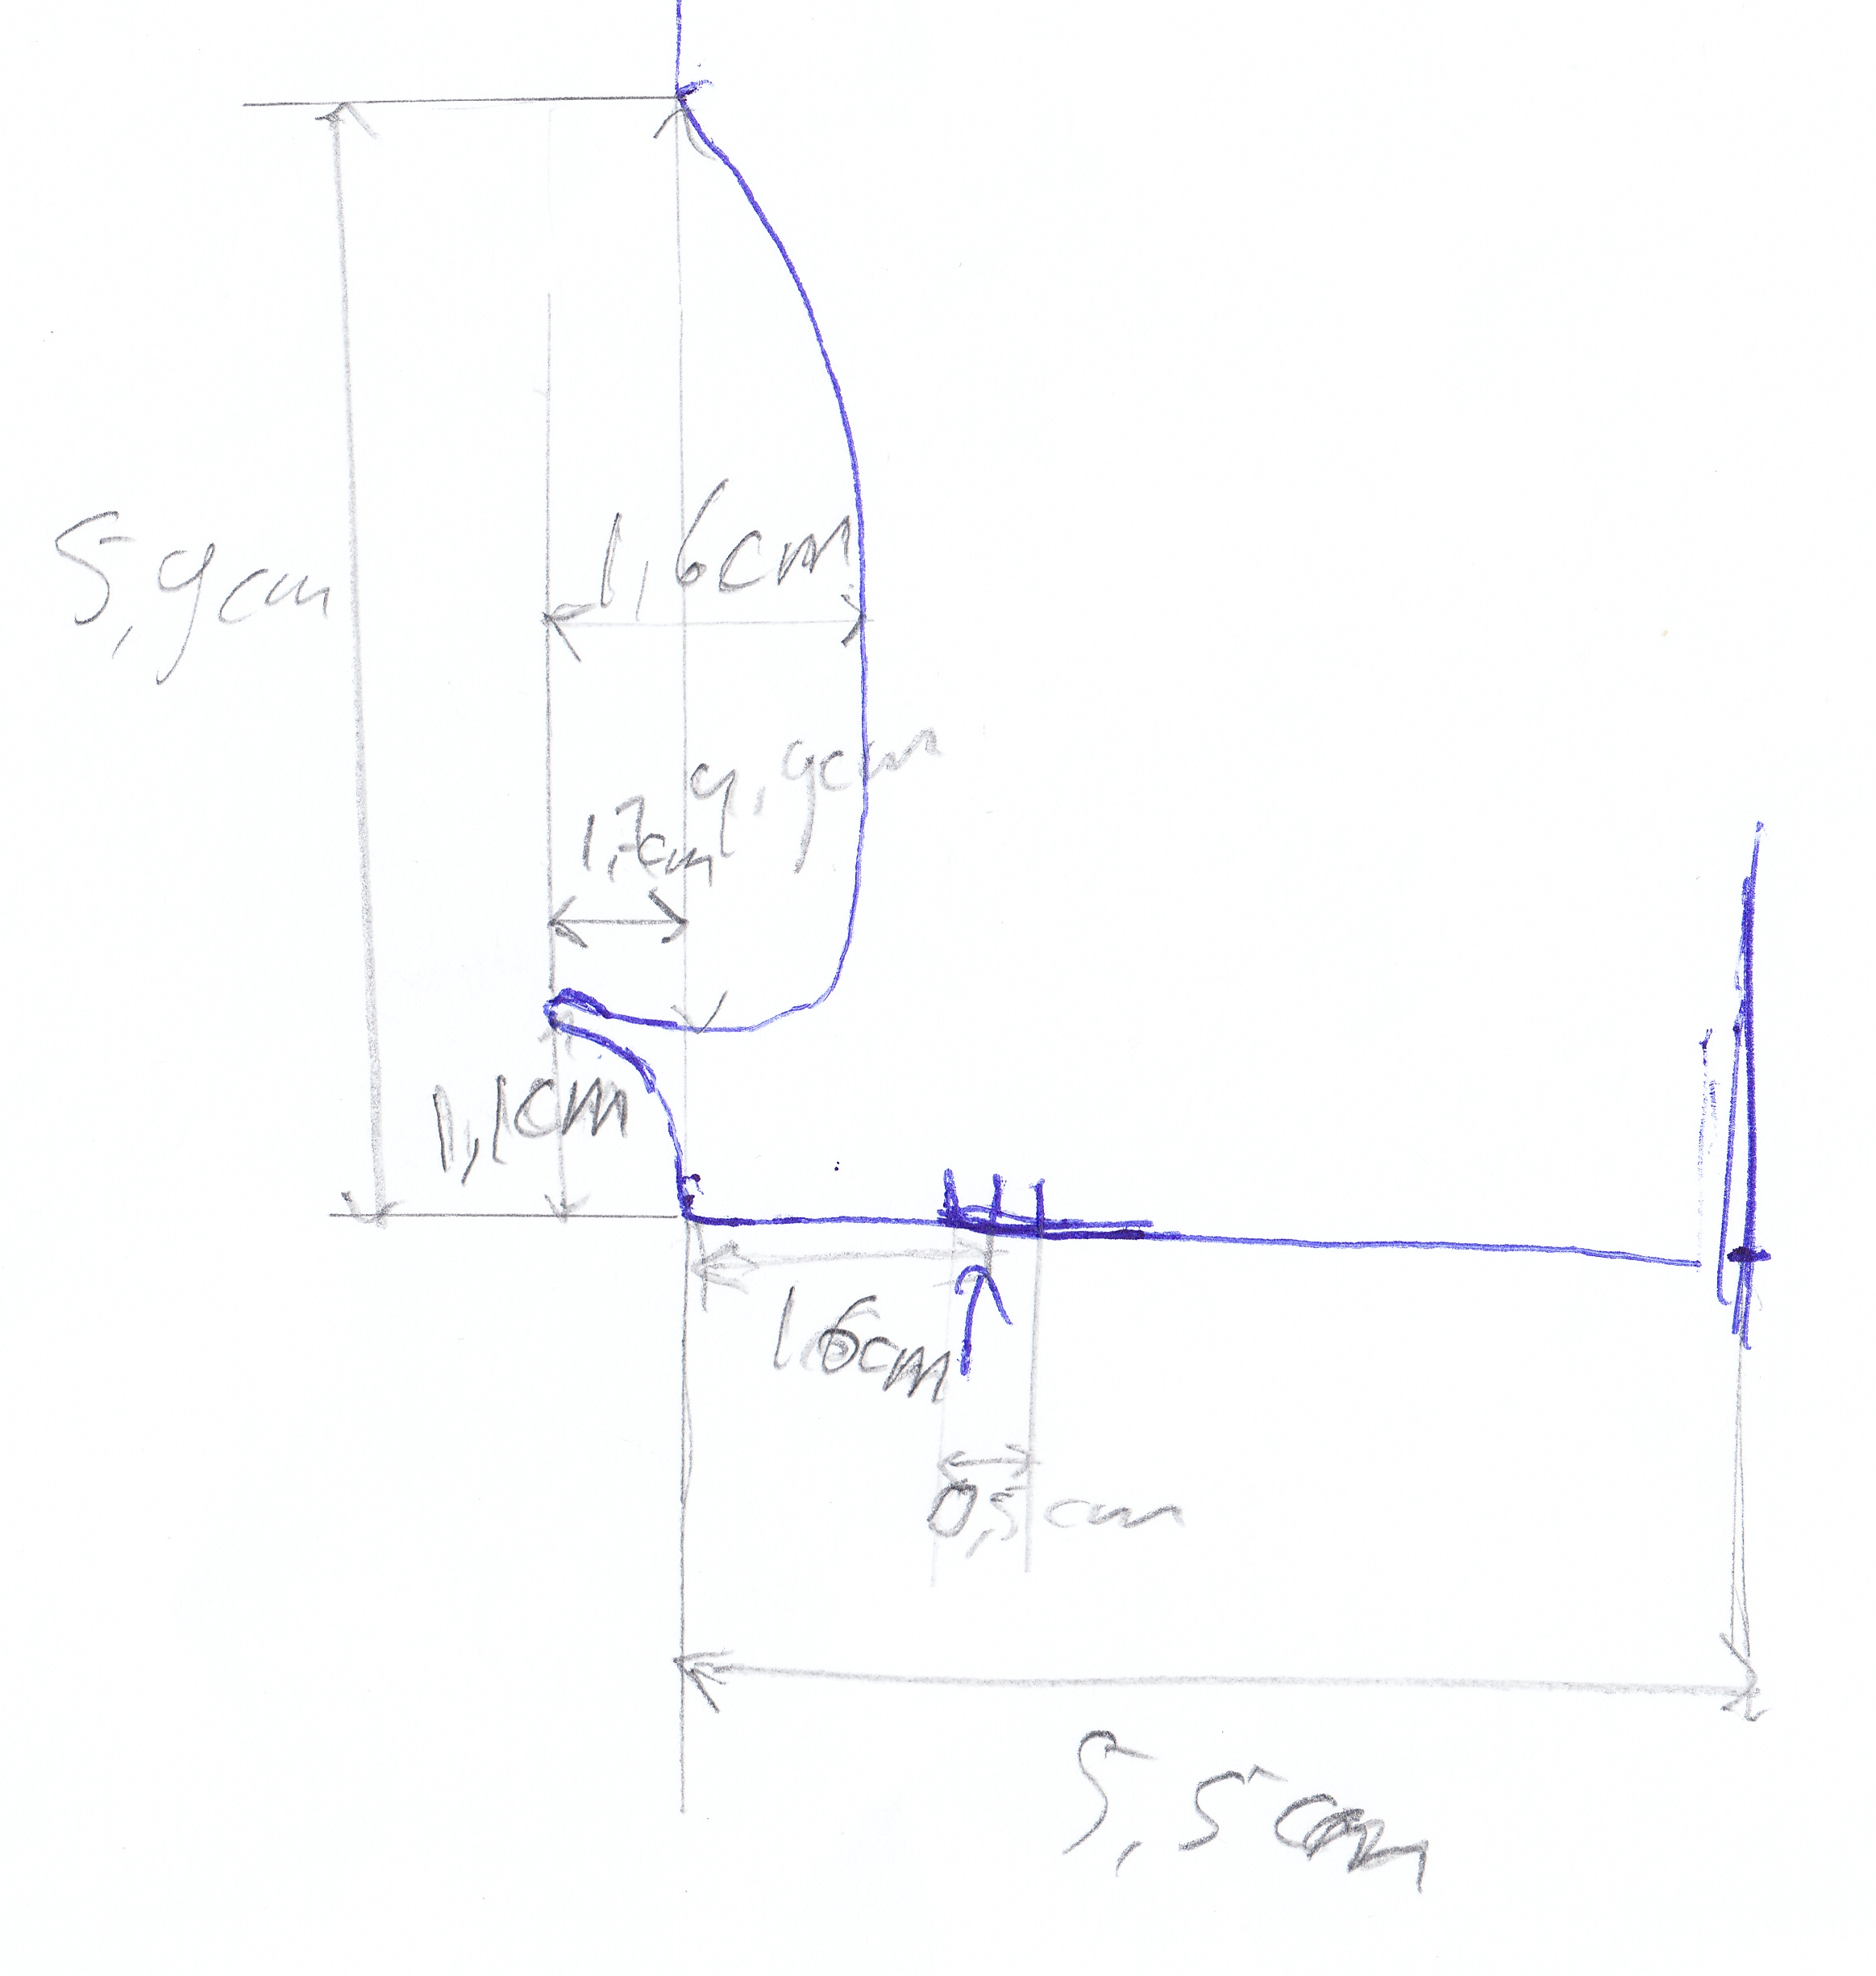 5,9cm
1,6cm
4,9cm
1,7cm
1,1cm
1,6cm
0,5cm
5,5cm